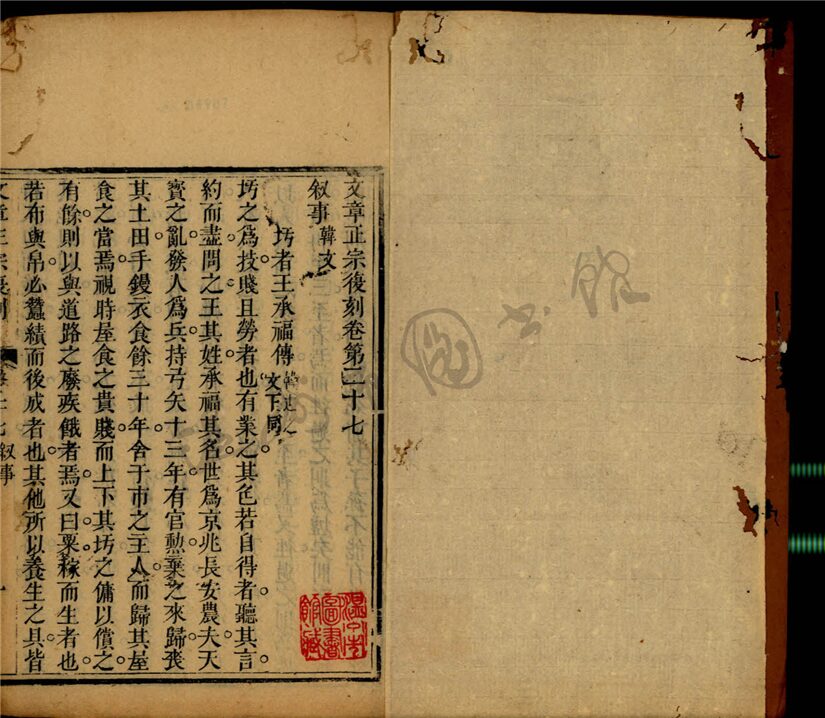 文章正宗復刻卷第二十七
叙事 韓文
圬者王承福傳 韓退之文下同
圬之爲技賤且勞者也有業之其色若自得者聽其言
約而盡問之王其姓承福其名世爲京兆長安農夫天
寶之亂發人爲兵持弓矢十三年有官勲棄之來歸喪
其土田手鏝衣食餘三十年舍于市之主人而歸其屋
食之當焉視時屋食之貴賤而上下其圬之傭以償之
有餘則以與道路之廢疾餓者焉又曰粟稼而生者也
若布與帛必蠶績而後成者也其他所以養生之具皆
叙事 一
溫州市圖書館藏